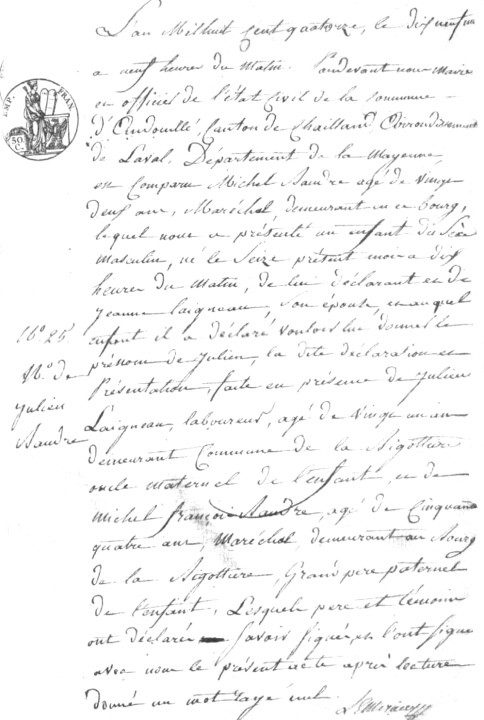 L'an Mil huit Cent quatorze, le dix neuf
a neuf heures du Matin. Pardevant nous Maire
ou officier de l'état Civil de la Commune
d'Andouillé, Canton de Chailland, arrondissement
de Laval, Département de la Mayenne,
est Comparu Michel Naudre agé de vingt
deux ans, Maréchal, demeurant en ce bourg,
lequel nous a présenté un enfant du Sexe
masculin, né le Seize présent mois a dix
heures du Matin, de lui déclarant et de
Jeanne Laigneau, son épouse, et auquel
enfant il a déclaré vouloir lui donner le
prénom de Julien, la dite déclaration et
Présentation, faite en présence de Julien
Laigneau, laboureur, agé de vingt un an
demeurant Commune de la Bigottiere
oncle maternel de l'enfant, et de
Michel françois Naudre, agé de Cinquante
quatre ans, Maréchal, demeurant au Bourg
de la Bigottiere, Grand pere paternel
de l'enfant, Lesquels pere et témoins
ont déclaré savoir signer, et l'ont signé
avec nous le présent acte après lecture
donné un mot rayé nul.
N.º 25
N.ce de
Julien
Naudre
EMP. FRAN.
50 C.